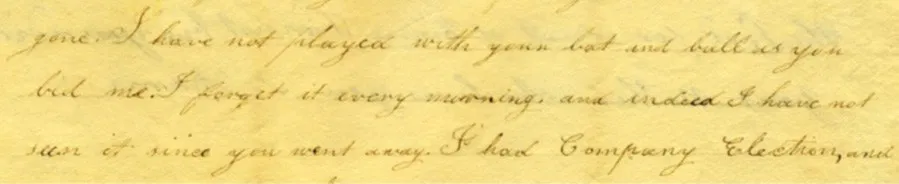 gone. I have not played with your bat and ball as you
bid me. I forget it every morning. and indeed I have not
seen it since you went away. I had Company Election, and